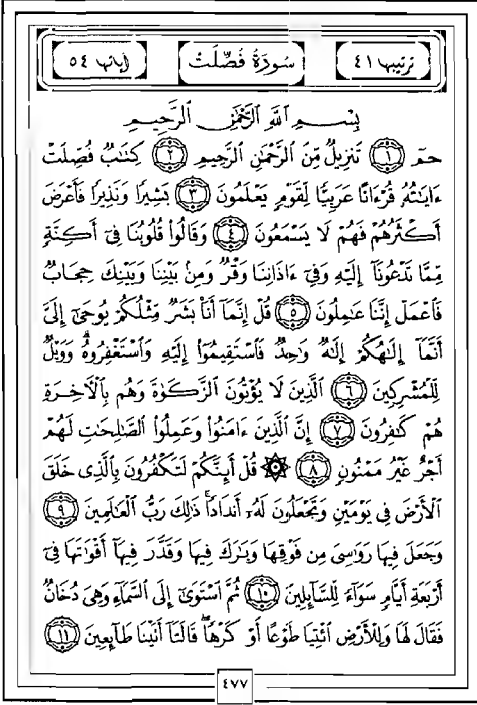 ترتيبها ٤١ سُورَةُ فُصِّلَتْ آياتها ٥٤
بِسْمِ ٱللَّهِ ٱلرَّحْمَٰنِ ٱلرَّحِيمِ
حمٓ ١ تَنزِيلٌ مِّنَ ٱلرَّحْمَٰنِ ٱلرَّحِيمِ ٢ كِتَٰبٌ فُصِّلَتْ
ءَايَٰتُهُۥ قُرْءَانًا عَرَبِيًّا لِّقَوْمٍ يَعْلَمُونَ ٣ بَشِيرًا وَنَذِيرًا فَأَعْرَضَ
أَكْثَرُهُمْ فَهُمْ لَا يَسْمَعُونَ ٤ وَقَالُوا۟ قُلُوبُنَا فِىٓ أَكِنَّةٍ
مِّمَّا تَدْعُونَآ إِلَيْهِ وَفِىٓ ءَاذَانِنَا وَقْرٌ وَمِنۢ بَيْنِنَا وَبَيْنِكَ حِجَابٌ
فَٱعْمَلْ إِنَّنَا عَٰمِلُونَ ٥ قُلْ إِنَّمَآ أَنَا۠ بَشَرٌ مِّثْلُكُمْ يُوحَىٰٓ إِلَىَّ
أَنَّمَآ إِلَٰهُكُمْ إِلَٰهٌ وَٰحِدٌ فَٱسْتَقِيمُوٓا۟ إِلَيْهِ وَٱسْتَغْفِرُوهُ ۗ وَوَيْلٌ
لِّلْمُشْرِكِينَ ٦ ٱلَّذِينَ لَا يُؤْتُونَ ٱلزَّكَوٰةَ وَهُم بِٱلْءَاخِرَةِ
هُمْ كَٰفِرُونَ ٧ إِنَّ ٱلَّذِينَ ءَامَنُوا۟ وَعَمِلُوا۟ ٱلصَّٰلِحَٰتِ لَهُمْ
أَجْرٌ غَيْرُ مَمْنُونٍ ٨ ۞ قُلْ أَئِنَّكُمْ لَتَكْفُرُونَ بِٱلَّذِى خَلَقَ
ٱلْأَرْضَ فِى يَوْمَيْنِ وَتَجْعَلُونَ لَهُۥٓ أَندَادًا ۚ ذَٰلِكَ رَبُّ ٱلْعَٰلَمِينَ ٩
وَجَعَلَ فِيهَا رَوَٰسِىَ مِن فَوْقِهَا وَبَٰرَكَ فِيهَا وَقَدَّرَ فِيهَآ أَقْوَٰتَهَا فِىٓ
أَرْبَعَةِ أَيَّامٍ سَوَآءً لِّلسَّآئِلِينَ ١٠ ثُمَّ ٱسْتَوَىٰٓ إِلَى ٱلسَّمَآءِ وَهِىَ دُخَانٌ
فَقَالَ لَهَا وَلِلْأَرْضِ ٱئْتِيَا طَوْعًا أَوْ كَرْهًا ۖ قَالَتَآ أَتَيْنَا طَآئِعِينَ ١١
٤٧٧